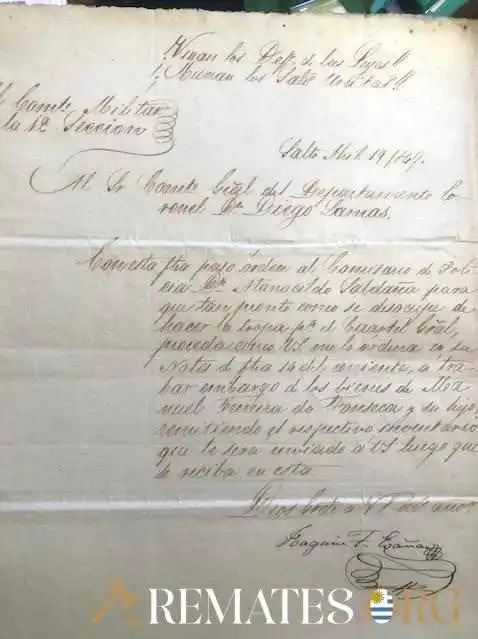 ¡Vivan los Defᵉˢ de las Leyes!!
¡Mueran los Salvᵉˢ Unitarˢ!!
El Comte Militar
la 1ª Sección
Salto Abril 19/849.
Al Sr Comte Gral del Departamento Co-
ronel Dn Diego Lamas.
Con esta fha paso órden al Comisario de Poli-
cia Dn Atanacildo Saldaña para
que tan pronto como se desocupe de
hacer la tropa pª el Cuartel Gral,
proceda como VS me lo ordena en su
Nota de fha 14 del corriente, á tra-
bar embargo de los bienes de Ma-
nuel Ferreira da Fonseca y su hijo,
remitiendo el respectivo inventario
que le sera enviado á VS luego que
se reciba en esta
Dios Gude á VS mˢ anoˢ
Joaquin T.
REMATES.ORG